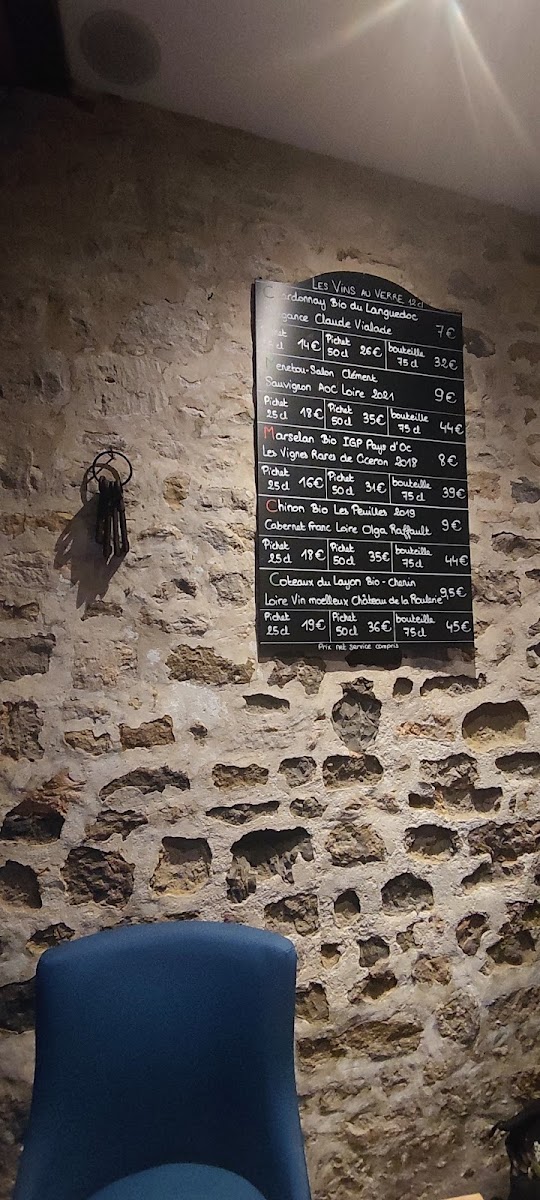 Les Vins au Verre 12cl
Chardonnay Bio du Languedoc
Claude Vialade 7€
14€ Pichet 50 cl 26€ bouteille 75 cl 32€
Menetou-Salon Clément
Sauvignon AOC Loire 2021 9€
Pichet 25 cl 18€ Pichet 50 cl 35€ bouteille 75 cl 44€
Marselan Bio IGP Pays d'Oc
Les Vignes Rares de Cceron 2018 8€
Pichet 25 cl 16€ Pichet 50 cl 31€ bouteille 75 cl 39€
Chinon Bio Les Peuilles 2019
Cabernet Franc Loire Olga Raffault 9€
Pichet 25 cl 18€ Pichet 50 cl 35€ bouteille 75 cl 44€
Coteaux du Layon Bio - Chenin
Loire Vin moelleux Château de la Roulerie 9,5€
Pichet 25 cl 19€ Pichet 50 cl 36€ bouteille 75 cl 45€
Prix net service compris